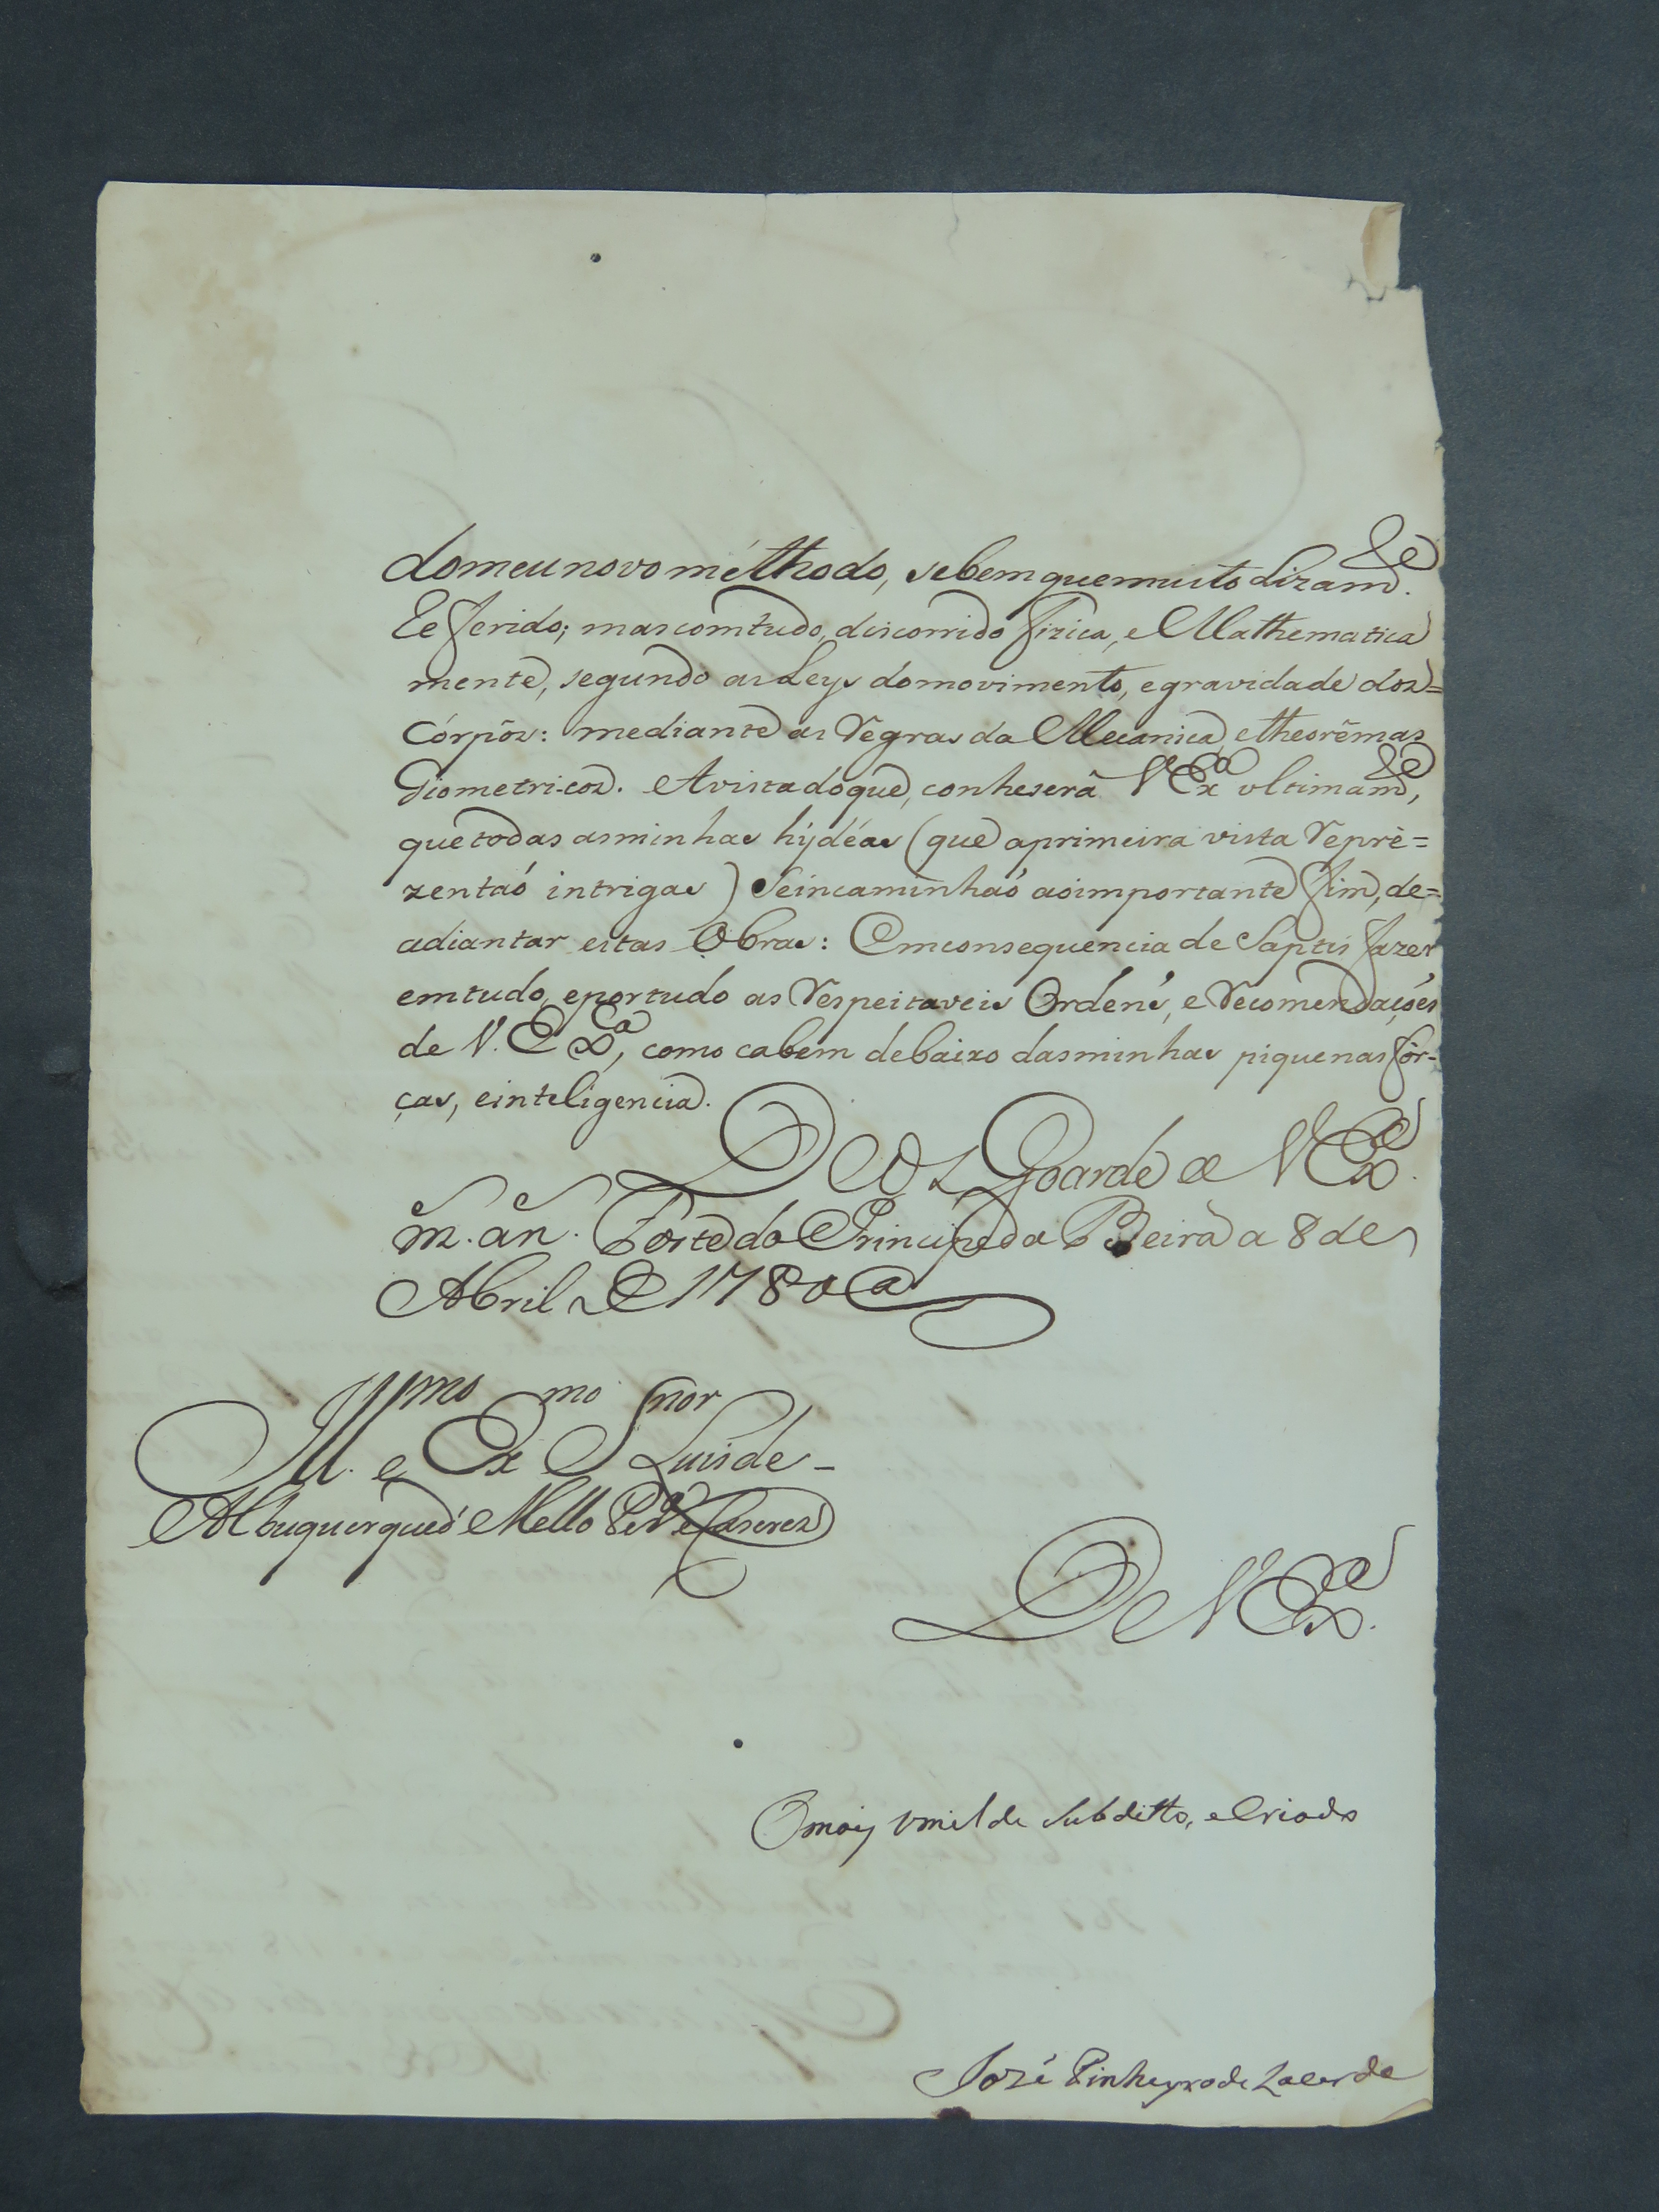 domeu novo méthodo, sebem que muito Lizamde.
Referido; mas comtudo, discorrido fizica, e Mathematica
mente, segundo as Leys do movimento, e gravidade dos=
Córpõs: mediante as Regras da Mecanica, e theorêmas
Giometri-cos. Avista do que, conheserá VExa ultimamde,
que todas as minhas hydéas (que a primeira vista Reprè=
zentaó intrigas) Se incaminhaó ao importante fim, de=
adiantar estas Obras: Em consequencia de Saptisfazer
em tudo, e por tudo as Respeitaveis Ordens, e Recomendaçoés
de V. Exa, como cabem debaixo das minhas piquenas fôr-
ças, e inteligencia.
DEOS Goarde a VExa.
ms. ans. Forte do Principe da Beira a 8 de
Abril de 1780 a
Illmo. e Exmo Snor Luis de-
Albuquerque d' Mello Pera e Caseres
De VExa.
O mais Umilde Subditto, e Criado
Jozé Pinheyro de Lacerda